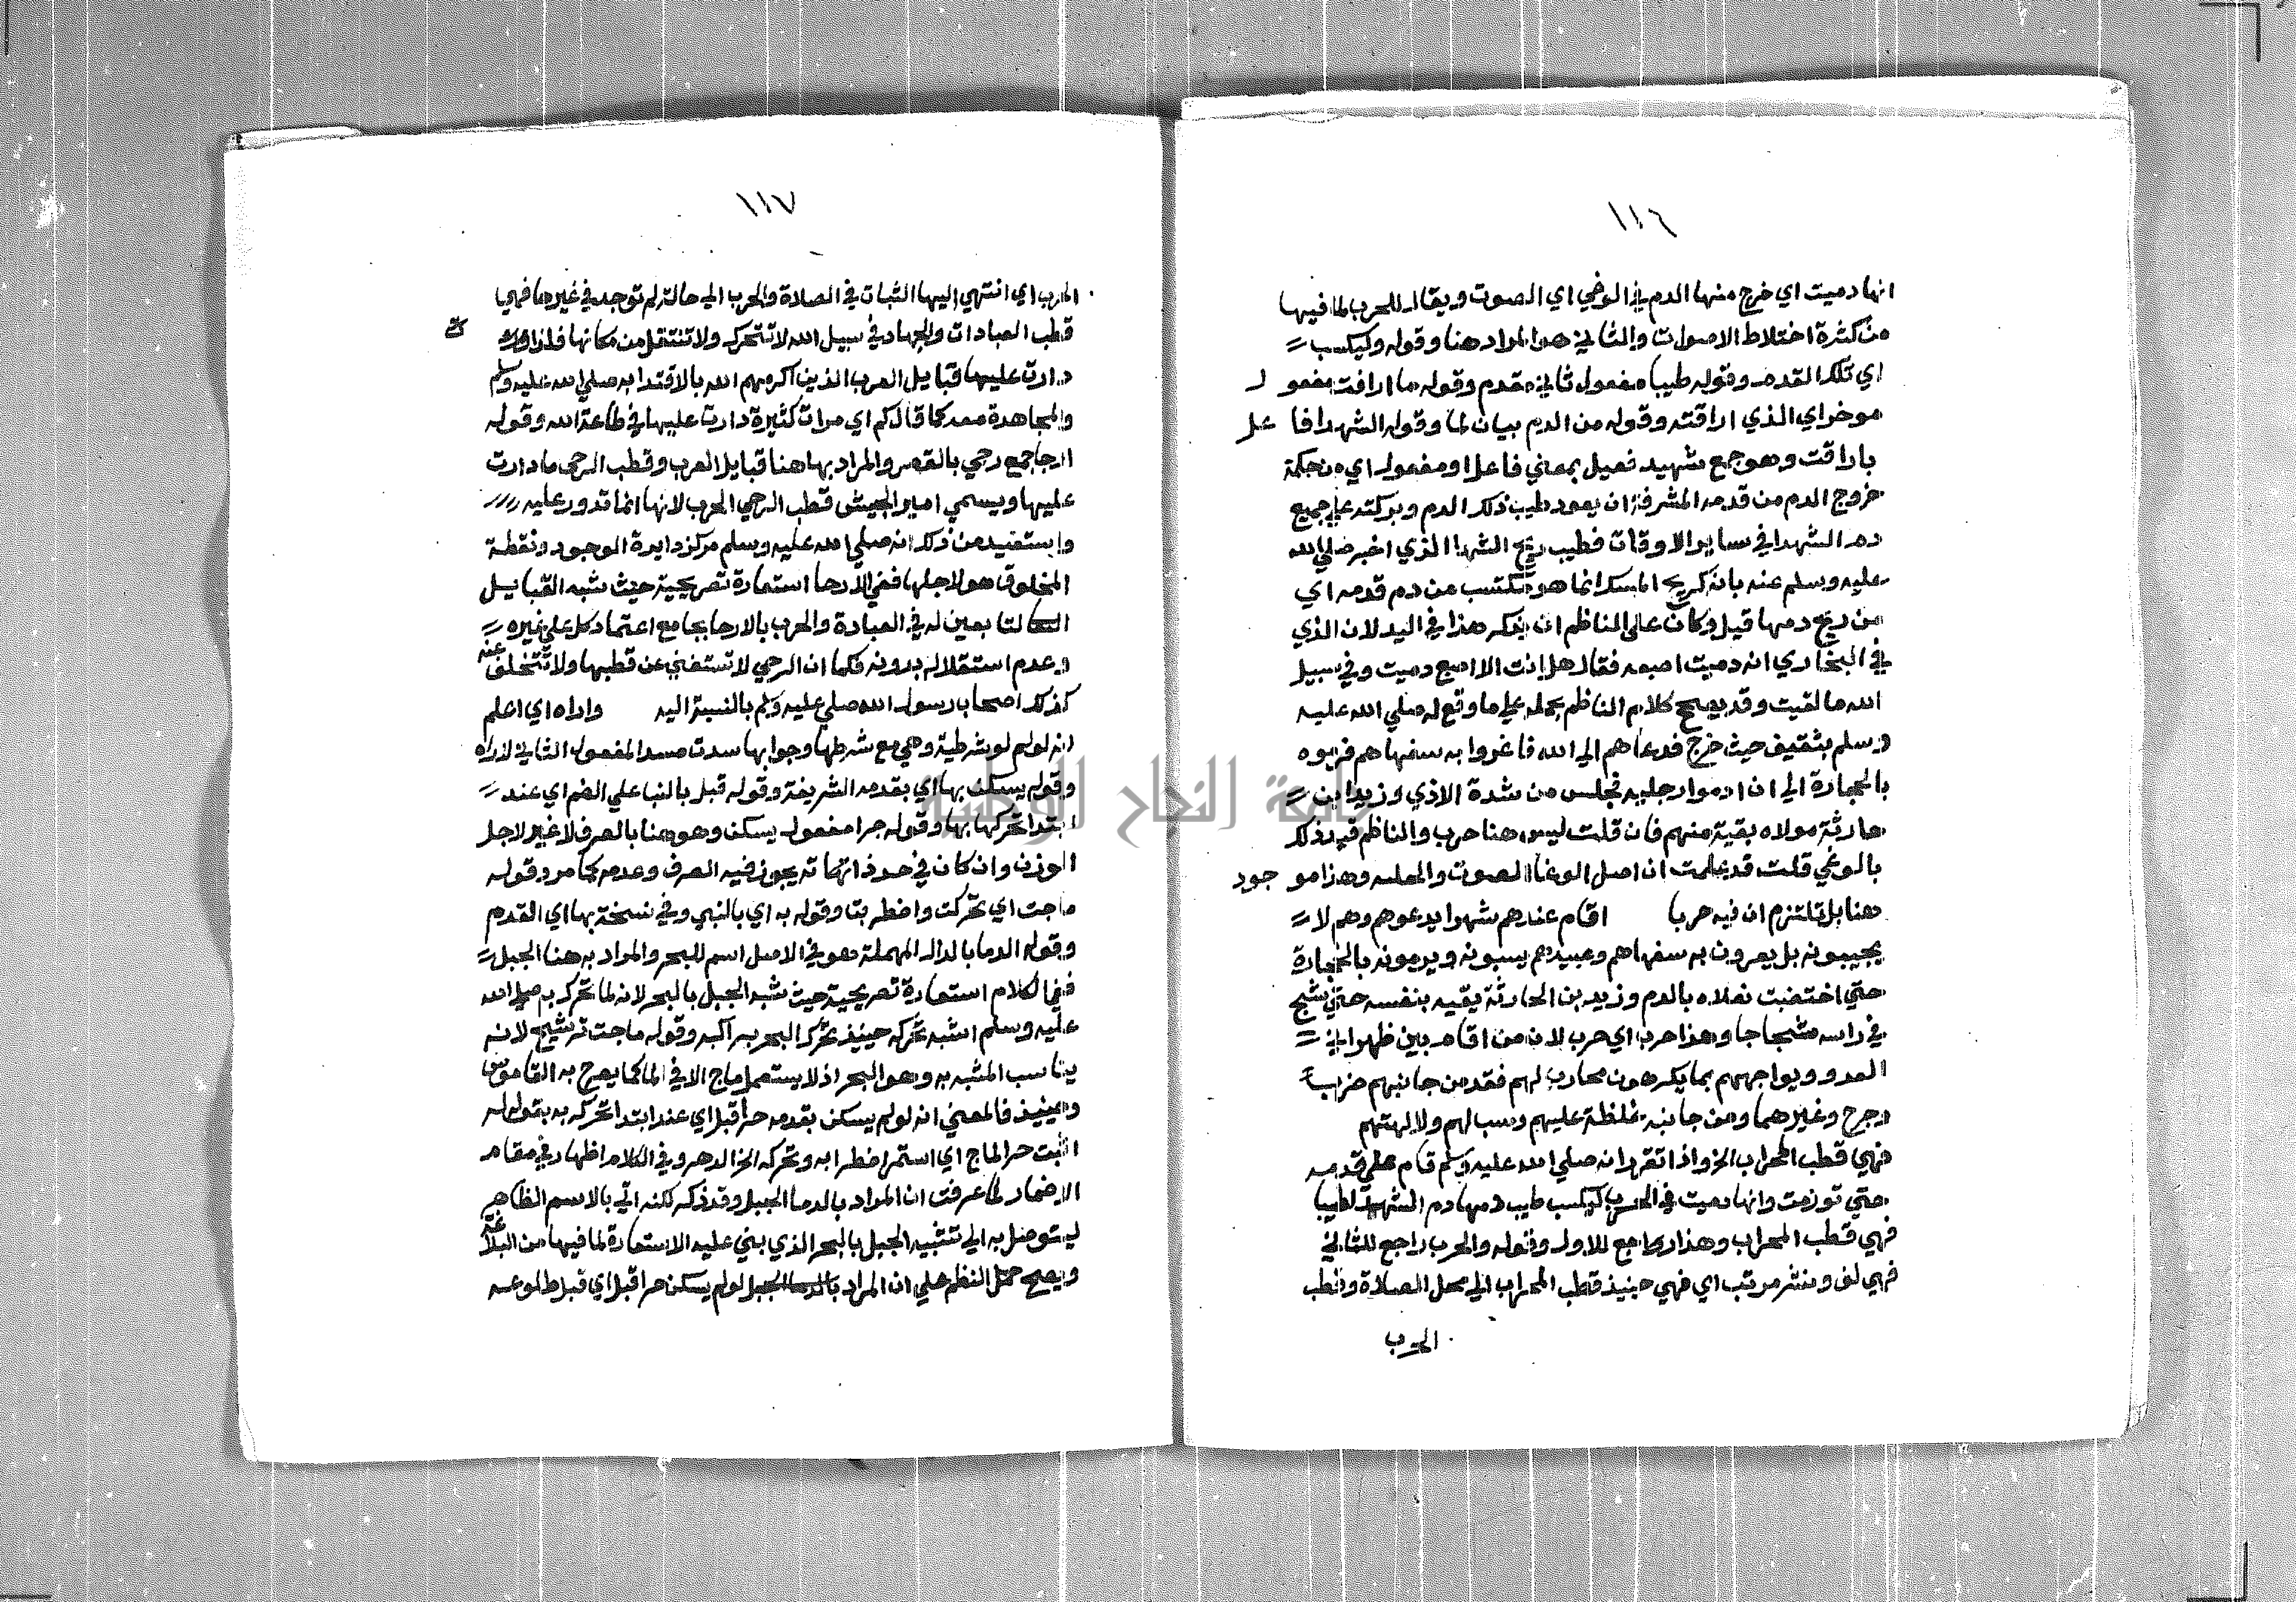 ١١٦
انها دميت اي خرج منها الدم في الوغي اي الصوت ويقال للحرب لما فيها
من كثرة اختلاط الاصوات والثاني هو المراد هنا وقوله وليكسب
اي تلك القدم وقوله طيبا مفعول ثاني مقدم وقوله ما اراقت مفعول
موخر اي الذي اراقته وقوله من الدم بيان لما وقوله الشهدا فاعل
باراقت وهو جمع شهيد فعيل بمعني فاعل او مفعول اي من حكمة
خروج الدم من قدمه المشرفة ان يعود طيب ذلك الدم وبركته علي جميع
دم الشهدا في ساير الاوقات فطيب ريح الشهدا الذي اخبر صلي الله
عليه وسلم عنه بانه كريح المسك انما هو تكتسب من دم قدمه اي
من ريح دمها قيل وكان علي الناظم ان يذكر هذا في اليد لان الذي
في البخاري انه دميت اصبعه فقال هل انت الا اصبع دميت وفي سبيل
الله ما لقيت وقد يصحح كلام الناظم بحمله علي ما وقع له صلي الله عليه
وسلم بثقيف حيث خرج فدعاهم الي الله فاغروا به سفهاهم فرموه
بالحجارة الي ان ادموا رجليه فجلس من شدة الاذي وزيد ابن
حارثة مولاه بقية منهم فان قلت ليس هنا حرب والناظم قيد ذلك
بالوغي قلت قد علمت ان اصل الوغا الصوت والجلبه وهذا موجود
هنا بل تلتزم ان فيه حربا اقام عندهم شهرا يدعوهم وهم لا
يجيبونه بل يغرون به سفهاهم وعبيدهم يسبونه ويرمونه بالحجارة
حتي اختضبت نعلاه بالدم وزيد بن الحارثة يقيه بنفسه حتي شج
في راسه شجاجا وهذا حرب اي حرب لان من اقام بين ظهراني
العدو ويواجههم بما يكرهون محارب لهم فقد من جانبهم ضرب
وجرح وغيرهما ومن جانبه غلظة عليهم وسب لهم ولالهتهم
فهي قطب المحراب الخ واذا تقرر انه صلي الله عليه وسلم قام علي قدميه
حتي تورمت وانها دميت في الحرب ليكسب طيب دمها دم الشهدا طيبا
فهي قطب المحراب وهذا راجع للاول وقوله والحرب راجع للثاني
فهي لف ونشر مرتب اي فهي حينيذ قطب المحراب الي محل الصلاة وقطب
الحرب
١١٧
الحرب اي انتهي اليها الثبات في الصلاة والحرب الي حالة لم توجد في غيرها فهي
قطب العبادات والجهاد في سبيل الله لا تتحرك ولا تنتقل من مكانها فلذا
دارت عليها قبايل العرب الذين اكرمهم الله بالاقتدا به صلي الله عليه وسلم
والمجاهدة معه كما قال كم اي مرات كثيرة دارت عليها في طاعة الله وقوله
ارحا جمع رحي بالقصر والمراد بها هنا قبايل العرب وقطب الرحي ما دارت
عليها ويسمي امير الجيش قطب الرحي الحرب لانها انما تدور عليه
واستفيد من ذلك انه صلي الله عليه وسلم مركز دايرة الوجود ونقطة
المخلوق هو لاجلها ففي الارحا استعارة تصريحية حيث شبه القبايل
التابعين له في العبادة والحرب بالارحا بجامع اعتماد كل علي غيره
وعدم استقلاله بدونه فكما ان الرحي لا تستغني عن قطبها ولا تتخلف عنه
كذلك اصحاب رسول الله صلي عليه وسلم بالنسبة اليه واراه اي اعلم
انه لو لم لو شرطية وهي مع شرطها وجوابها سدت مسد المفعول الثاني لاراه
وقوله يسكن بها اي بقدمه الشريفة وقوله قبل بالبنا علي الضم اي عند
ابتدا تحركها بها وقوله حرا مفعول يسكن وهو هنا بالصرف لا غير لاجل
الوزن وان كان في حد ذاته يجوز فيه الصرف وعدمه كما مر وقوله
ماجت اي تحركت واضطربت وقوله به اي بالنبي وفي نسخة بها اي القدم
وقوله الدما بالدال المهملة هو في الاصل اسم للبحر والمراد به هنا الجبل
ففي الكلام استعارة تصريحية حيث شبه الجبل بالبحر لانه لما تحرك به صلي الله
عليه وسلم اشبه تحركه حينيذ تحرك البحر براكبه وقوله ماجت ترشيح لانه
يناسب المشبه به وهو البحر اذ لا يستعمل ماج الا في الما كما يصرح به القاموس
وحينيذ فالمعني انه لو لم يسكن بقدمه حرا قبل اي عند ابتدا تحركه به بقوله له
اثبت حرا لماج اي استمر اضطرابه وتحركه الخ الدهر وفي الكلام اظهار في مقام
الاضمار لما عرفت ان المراد بالدما الجبل وقد ذكر لكنه اتي بالاسم الظاهر
ليتوصل به الي تشبيه الجبل بالبحر الذي بني عليه الاستعارة لما فيها من البلاغة
ويصح حمل النظم علي ان المراد بالدما الجبل لو لم يسكن حرا قبل اي قبل طلوعه